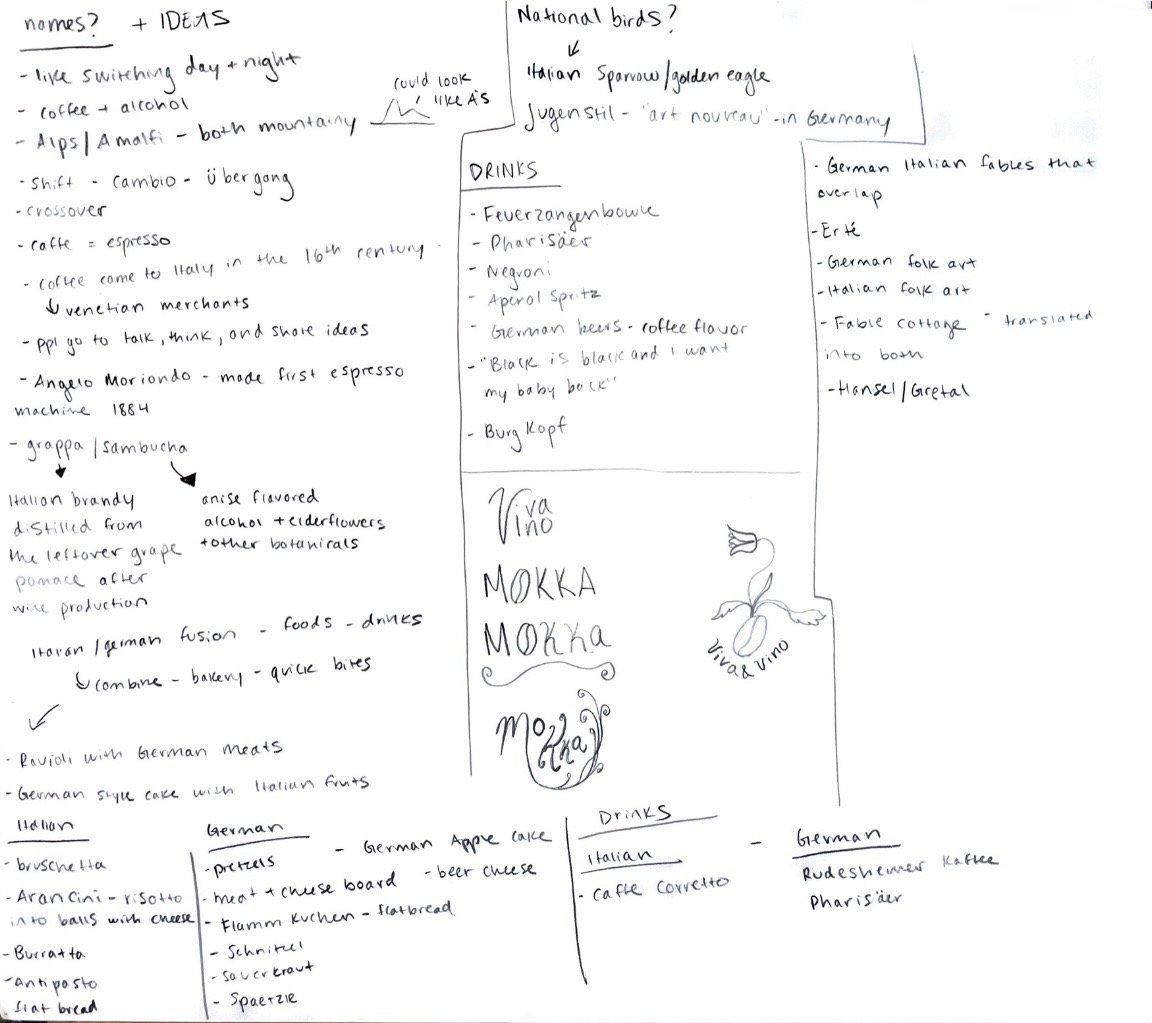 names? + IDEAS
- like switching day + night
- coffee + alcohol
- Alps/Amalfi - both mountainy
could look
like A's
- Shift - Cambio - Übergang
- crossover
- caffe = espresso
- coffee come to Italy in the 16th century
↳ venetian merchants
- ppl go to talk, think, and share ideas
- Angelo Moriondo - made first espresso
machine 1884
- grappa / sambucha
Italian brandy
distilled from
the leftover grape
pomace after
wine production
anise flavored
alcohol + elderflowers
+ other botanicals
Italian/german fusion - foods - drinks
↳ combine - bakery - quick bites
- Ravioli with German meats
- German style cake with Italian fruits
National birds?
Italian Sparrow/golden eagle
Jugenstil - "art nouveau" - in Germany
DRINKS
- Feuerzangenbowle
- Pharisäer
- Negroni
- Aperol Spritz
- German beers - coffee flavor
- "Black is black and I want
my baby back"
- Burg Kopf
- German Italian fables that
overlap
- Erté
- German folk art
- Italian folk art
- Fable cottage - translated
into both
- Hansel/Gretal
Viva
Vino
MOKKA
MOKKa
Mokka
Viva & Vino
Italian
- bruschetta
- Arancini - risotto
into balls with cheese
- Burratta
- Antipasto
flat bread
German
- pretzels
- German Apple cake
- meat + cheese board - beer cheese
- Flamm Kuchen - flatbread
- Schnitzel
- Sauerkraut
- Spaetzle
Drinks
Italian
- caffe corretto
- German
Rudesheimer Kaffee
Pharisäer